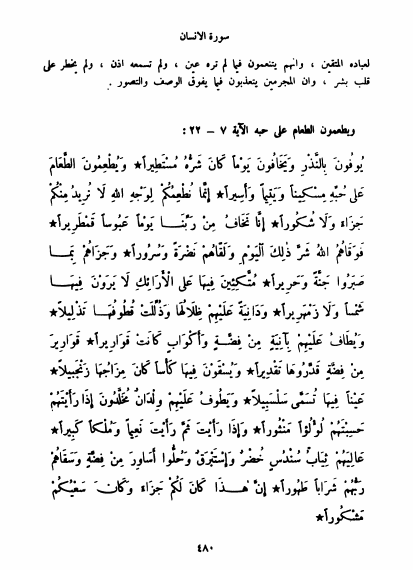 سورة الانسان
لعباده المتقين ، وانهم يتنعمون فيما لم تره عين ، ولم تسمعه اذن ، ولم يخطر على
قلب بشر ، وان المجرمين يتعذبون فيما يفوق الوصف والتصور .
ويطعمون الطعام على حبه الآية ٧ – ٢٢ :
يُوفُونَ بِالنَّذْرِ وَيَخَافُونَ يَوْماً كَانَ شَرُّهُ مُسْتَطِيراً★ وَيُطْعِمُونَ الطَّعَامَ
عَلَى حُبِّهِ مِسْكِيناً وَيَتِيماً وَأَسِيراً★ إِنَّمَا نُطْعِمُكُمْ لِوَجْهِ اللهِ لَا نُرِيدُ مِنْكُمْ
جَزَاءً وَلَا شُكُوراً★ إِنَّا نَخَافُ مِنْ رَبِّنَا يَوْماً عَبُوساً قَمْطَرِيراً★
فَوَقَاهُمُ اللهُ شَرَّ ذٰلِكَ الْيَوْمِ وَلَقَّاهُمْ نَضْرَةً وَسُرُوراً★ وَجَزَاهُمْ بِمَا
صَبَرُوا جَنَّةً وَحَرِيراً★ مُتَّكِئِينَ فِيهَا عَلَى الْأَرَائِكِ لَا يَرَوْنَ فِيهَا
شَمْساً وَلَا زَمْهَرِيراً★ وَدَانِيَةً عَلَيْهِمْ ظِلَالُهَا وَذُلِّلَتْ قُطُوفُهَا تَذْلِيلاً★
وَيُطَافُ عَلَيْهِمْ بِآنِيَةٍ مِنْ فِضَّةٍ وَأَكْوَابٍ كَانَتْ قَوَارِيرَا★ قَوَارِيرَ
مِنْ فِضَّةٍ قَدَّرُوهَا تَقْدِيراً★ وَيُسْقَوْنَ فِيهَا كَأْساً كَانَ مِزَاجُهَا زَنْجَبِيلاً★
عَيْناً فِيهَا تُسَمَّى سَلْسَبِيلاً★ وَيَطُوفُ عَلَيْهِمْ وِلْدَانٌ مُخَلَّدُونَ إِذَا رَأَيْتَهُمْ
حَسِبْتَهُمْ لُؤْلُؤاً مَنْثُوراً★ وَإِذَا رَأَيْتَ ثَمَّ رَأَيْتَ نَعِيماً وَمُلْكاً كَبِيراً★
عَالِيَهُمْ ثِيَابُ سُنْدُسٍ خُضْرٌ وَإِسْتَبْرَقٌ وَحُلُّوا أَسَاوِرَ مِنْ فِضَّةٍ وَسَقَاهُمْ
رَبُّهُمْ شَرَاباً طَهُوراً★ إِنَّ هٰذَا كَانَ لَكُمْ جَزَاءً وَكَانَ سَعْيُكُمْ
مَشْكُوراً★
٤٨٠